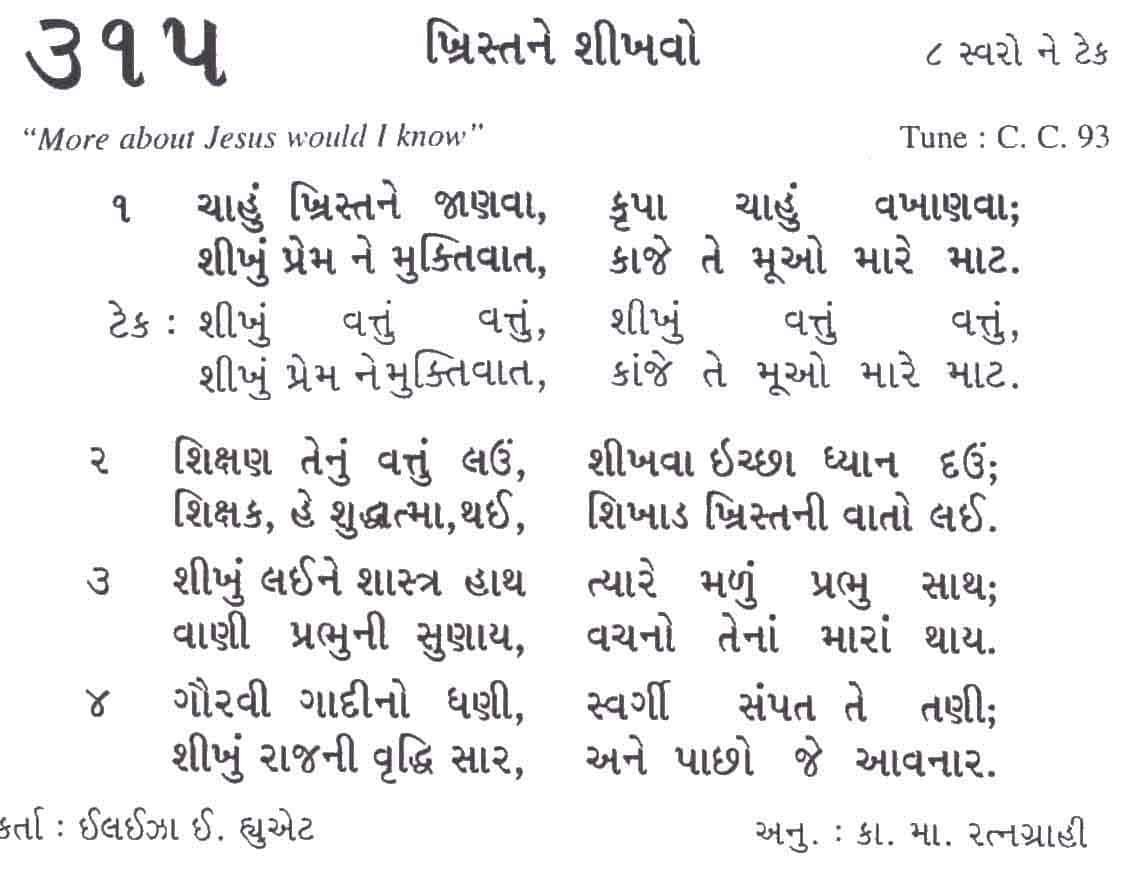 ૩૧૫ ખ્રિસ્તને શીખવો ૮ સ્વરો ને ટેક
“More about Jesus would I know” Tune : C. C. 93
૧ ચાહું ખ્રિસ્તને જાણવા, કૃપા ચાહું વખાણવા;
શીખું પ્રેમ ને મુક્તિવાત, કાજે તે મૂઓ મારે માટ.
ટેક : શીખું વત્તું વત્તું, શીખું વત્તું વત્તું,
શીખું પ્રેમ ને મુક્તિવાત, કાંજે તે મૂઓ મારે માટ.
૨ શિક્ષણ તેનું વત્તું લઉં, શીખવા ઇચ્છા ધ્યાન દઉં;
શિક્ષક, હે શુદ્ધાત્મા, થઈ, શિખાડ ખ્રિસ્તની વાતો લઈ.
૩ શીખું લઈને શાસ્ત્ર હાથ ત્યારે મળું પ્રભુ સાથ;
વાણી પ્રભુની સુણાય, વચનો તેનાં મારાં થાય.
૪ ગૌરવી ગાદીનો ધણી, સ્વર્ગી સંપત તે તણી;
શીખું રાજની વૃદ્ધિ સાર, અને પાછો જે આવનાર.
કર્તા : ઈલઈઝા ઈ. હ્યુએટ અનુ. : કા. મા. રત્નગ્રાહી